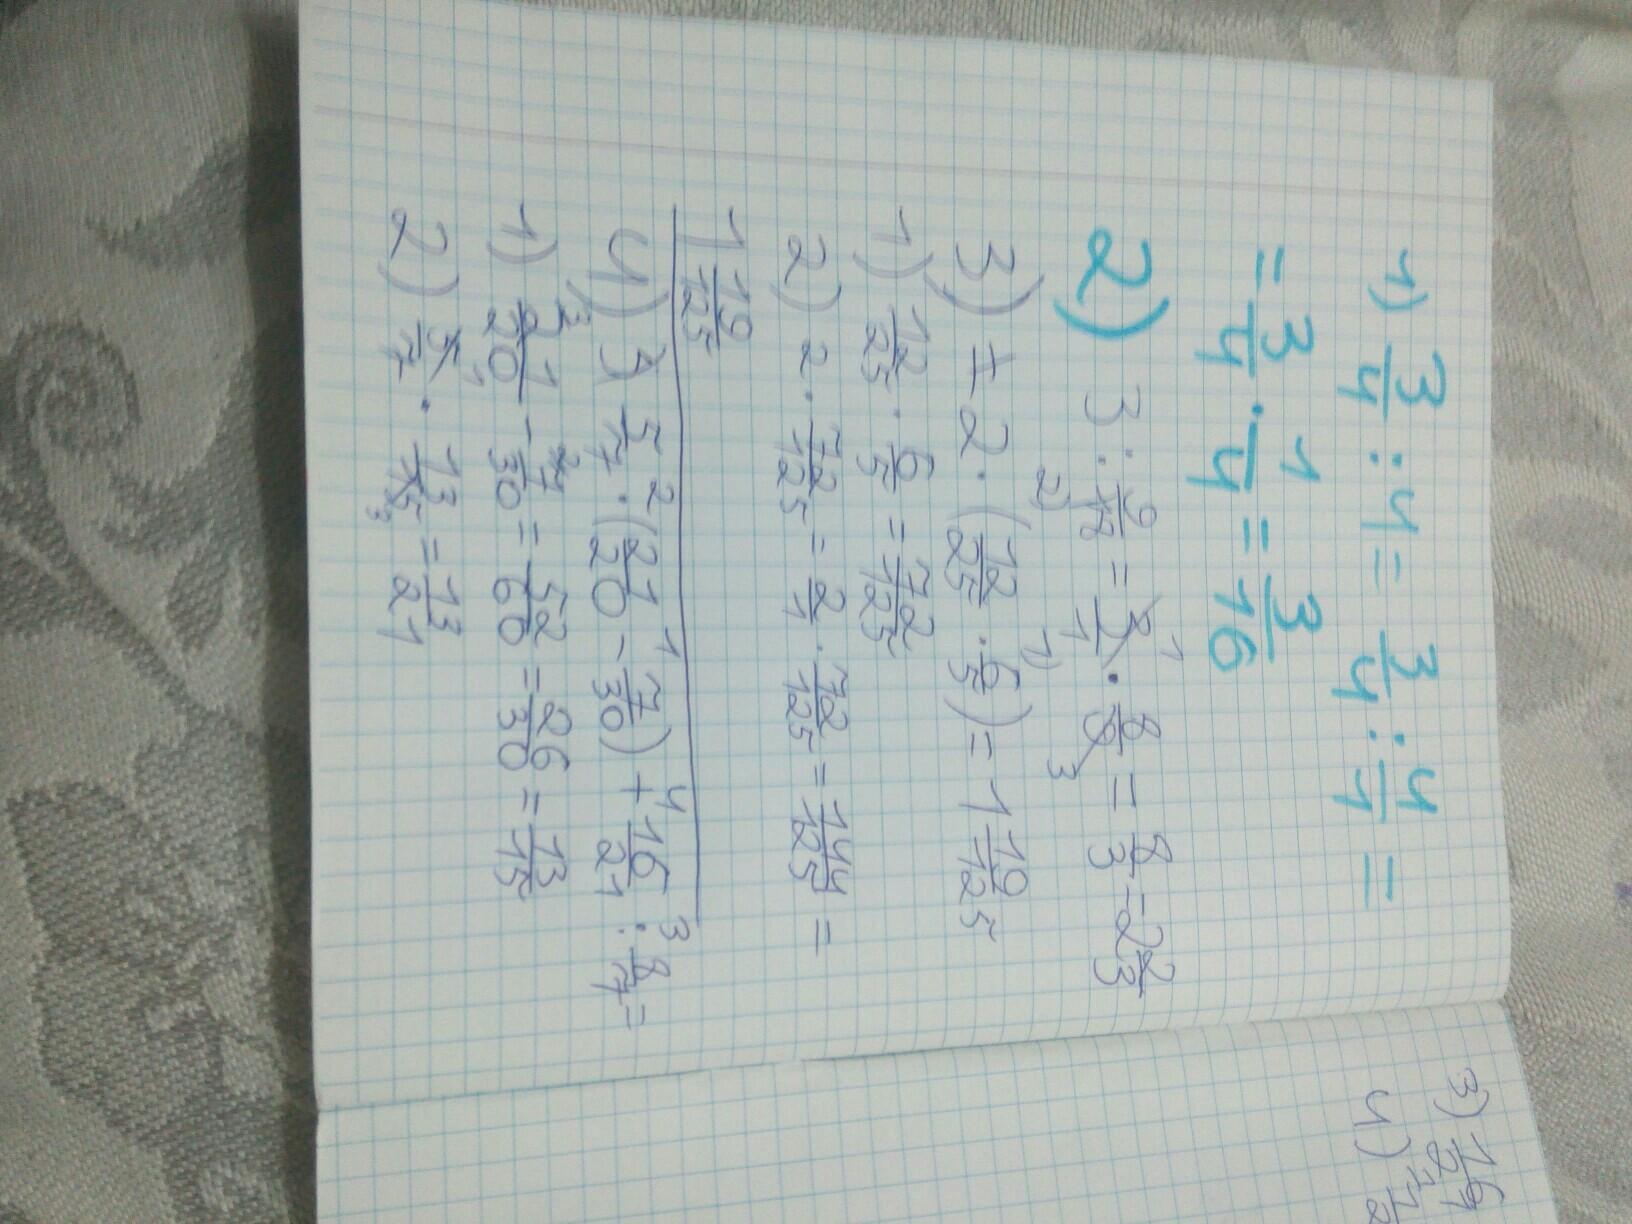 1) 3/4 : 4 = 3/4 : 4/1 =
= 3/4 · 1/4 = 3/16
2) 3 : 9/8 = 3/1 · 8/9 = 8/3 = 2 2/3
3) 2 · (12/25 · 6/5) = 1 19/125
1) 12/25 · 6/5 = 72/125
2) 2 · 72/125 = 2/1 · 72/125 = 144/125 =
1 19/125
4) 5/7 · (21/20 - 7/30) + 16/21 : 8/7 =
1) 21/20 - 7/30 = 52/60 = 26/30 = 13/15
2) 5/7 · 13/15 = 13/21
3) 16/21
4)